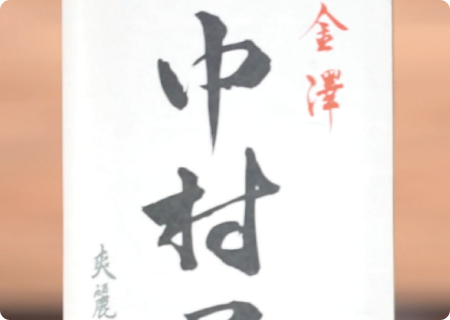 金澤
中村
爽麗